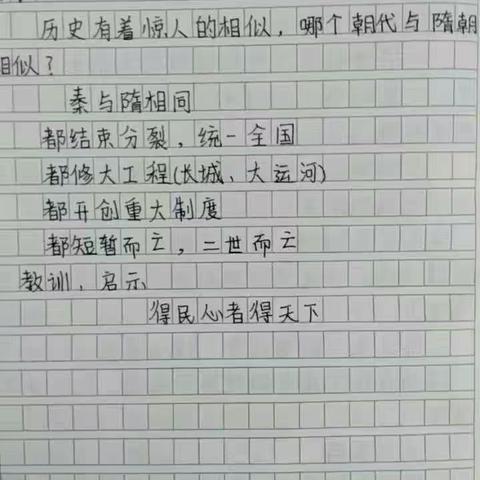 历史有着惊人的相似，哪个朝代与隋朝
相似？
秦与隋相同
都结束分裂，统一全国
都修大工程(长城、大运河)
都开创重大制度
都短暂而亡，二世而亡
教训、启示
得民心者得天下